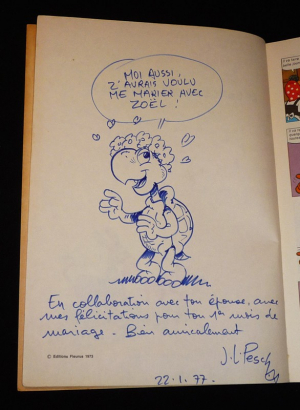 MOI AUSSI,
Z'AURAIS VOULU
ME MARIER AVEC
ZOËL !
En collaboration avec ton épouse, avec
mes félicitations pour ton 1er mois de
mariage - Bien amicalement
J.L. Pesch
© Editions Fleurus 1973
22.1.77.